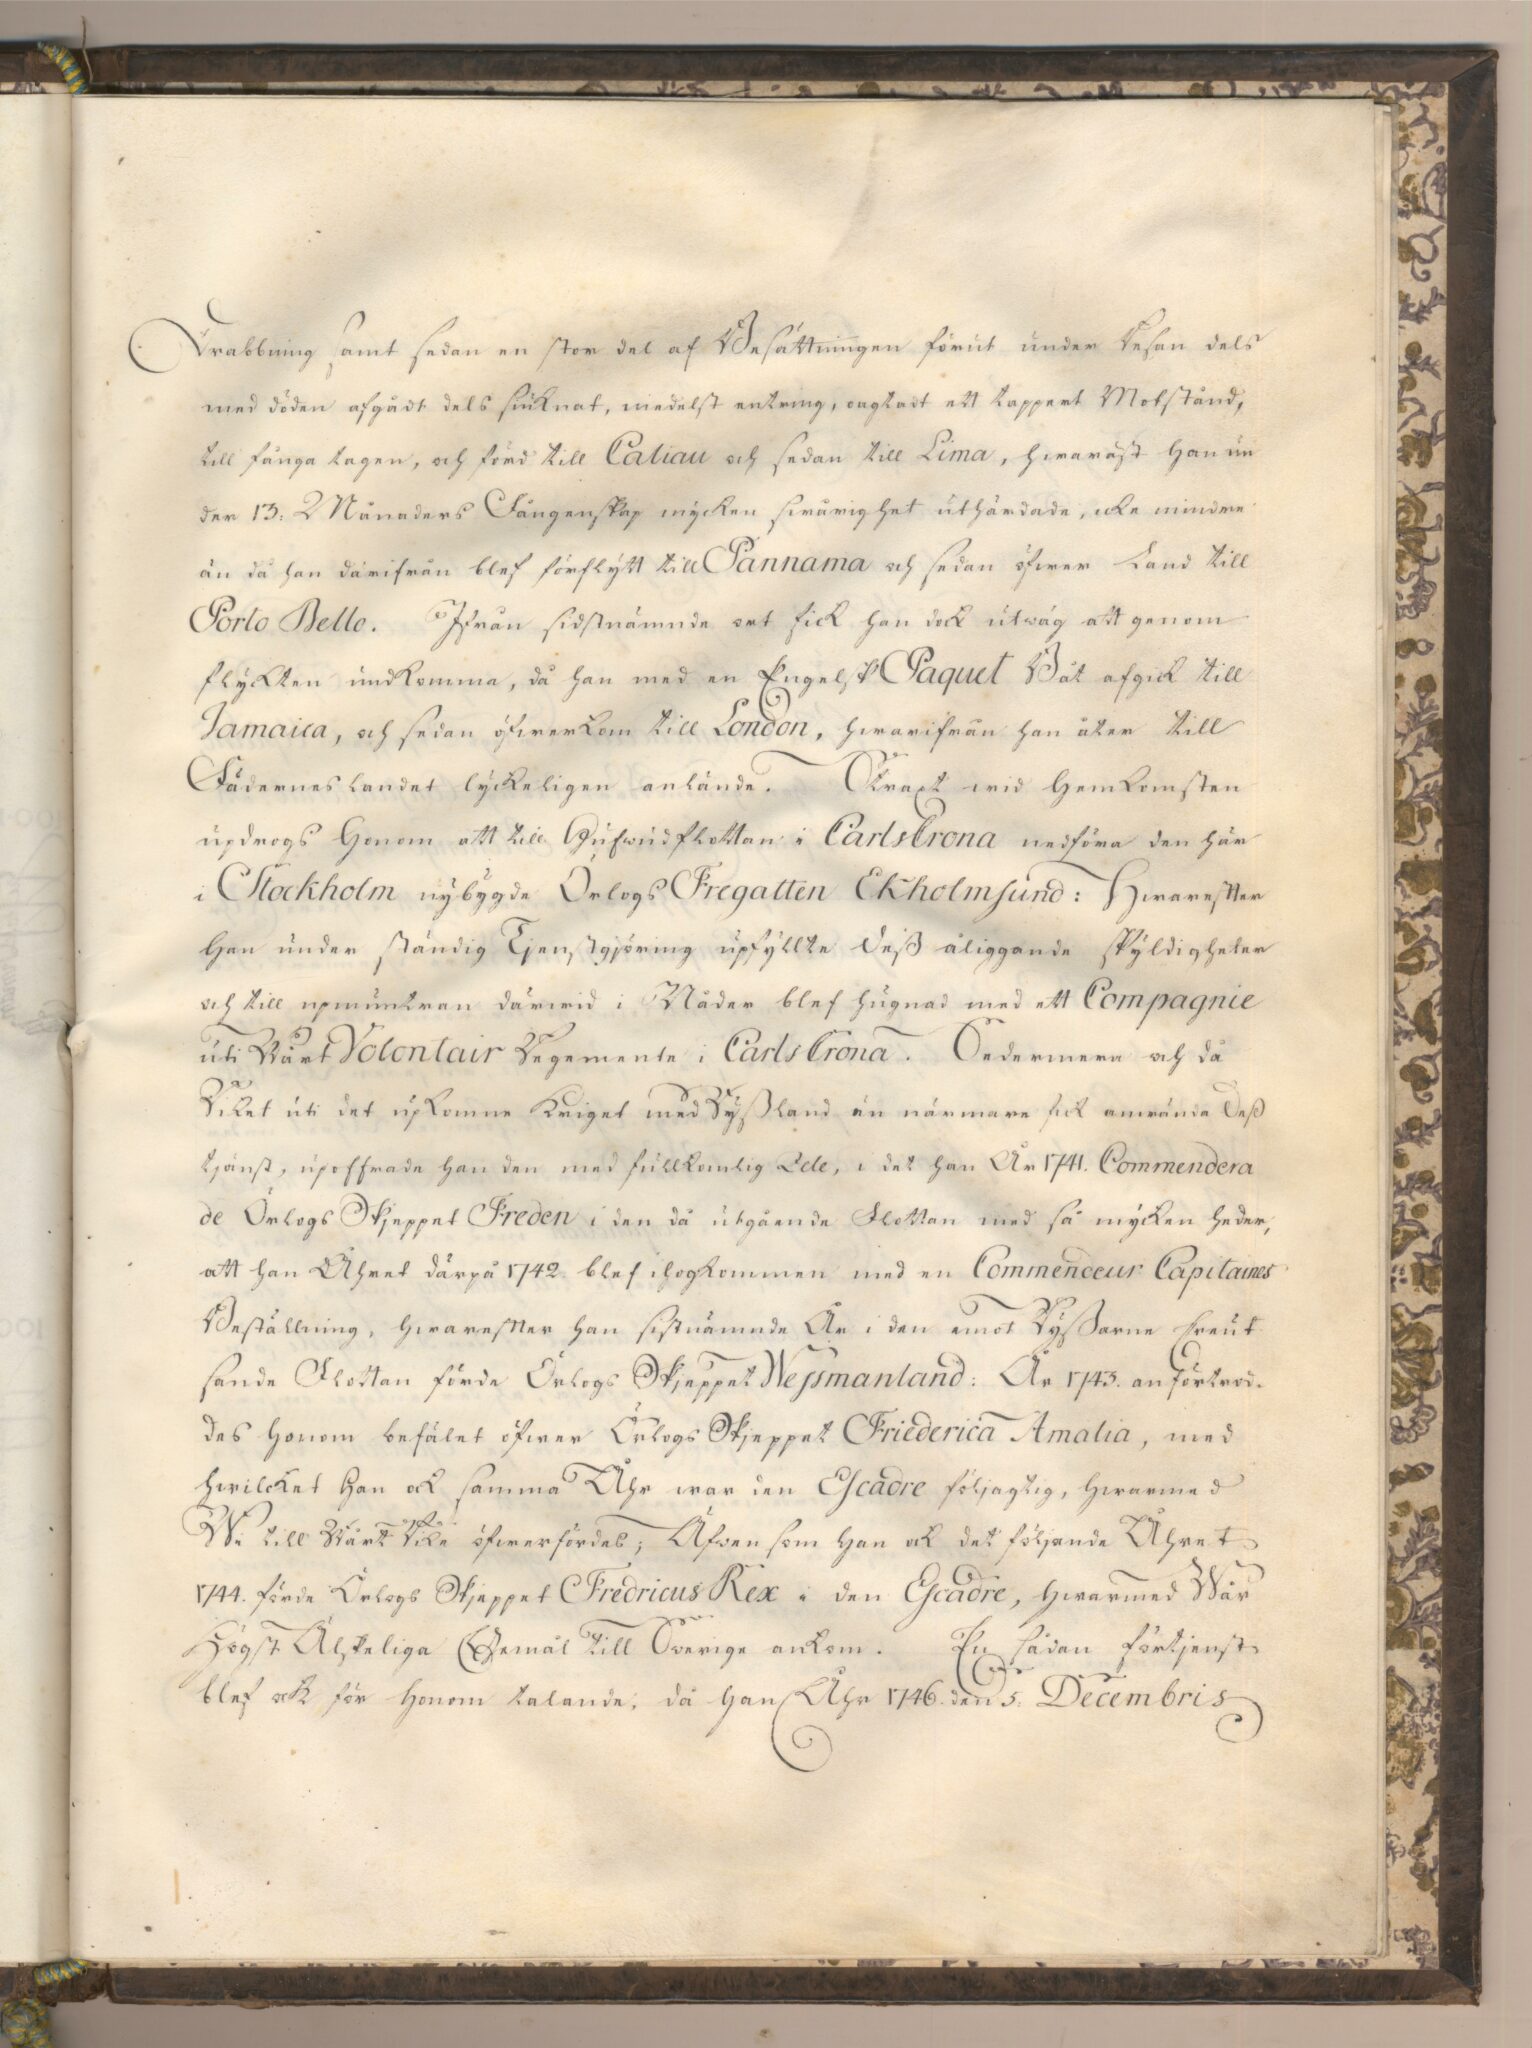 Drabbning samt sedan en stor del af Besättningen förut under Resan dels
med döden afgådt dels siuknat, medelst entring, oagtadt ett tappert Motstånd,
till fånga tagen, och förd till Caliau och sedan till Lima, hwaräst Han un
der 13: Månaders Fångenskap mycken swårighet uthärdade, icke mindre
än då han därifrån blef förflytt till Pannama och sedan öfwer Land till
Porto Bello. Ifrån sidstnämnde ort fick han dock utwäg att genom
flyckten undkomma, då han med en Engelsk Paquet Båt afgick till
Jamaica, och sedan öfwerkom till London, hwarifrån han åter till
Fäderneslandet lyckeligen anlände. Straxt wid Hemkomsten
updrogs Honom att till Hufwudflottan i CarlsCrona nedföra den här
i Stockholm nybygde Örlogs Fregatten Ekholmsund: Hwarefter
Han under ständig Tjenstgjöring upfyllte Deß åliggande skyldigheter
och till upmuntran därwid i Nåder blef hugnad med ett Compagnie
uti Wårt Volontair Regemente i CarlsCrona. Sedermera och då
Riket uti det upkomne Kriget med Ryßland än närmare fick använda Deß
tjänst, upoffrade han den med fullkomlig Zele, i det han År 1741. Commendera
de Örlogs Skjeppet Freden i den då utgående Flottan med så mycken heder,
att han Åhret därpå 1742. blef ihogkommen med en Commendeur Capitaines
Beställning, hwarefter han sistnämnde År i den emot Ryßarne kreut
sande Flottan förde Örlogs Skjeppet Wessmanland: År 1743. anförtrod-
des Honom befälet öfwer Örlogs Skjeppet Friederica Amalia, med
hwilcket Han ock samma Åhr war den Escadre följagtig, hwarmed
Wi till Wårt Rike öfwerfördes; Äfwen som Han ock det följande Åhret
1744. förde Örlogs Skjeppet Fredricus Rex i den Escadre, hwarmed Wår
Högst Älskeliga Gemål till Swerige ankom. En sådan förtjenst
blef ock för Honom talande, då Han Åhr 1746. den 5. Decembris